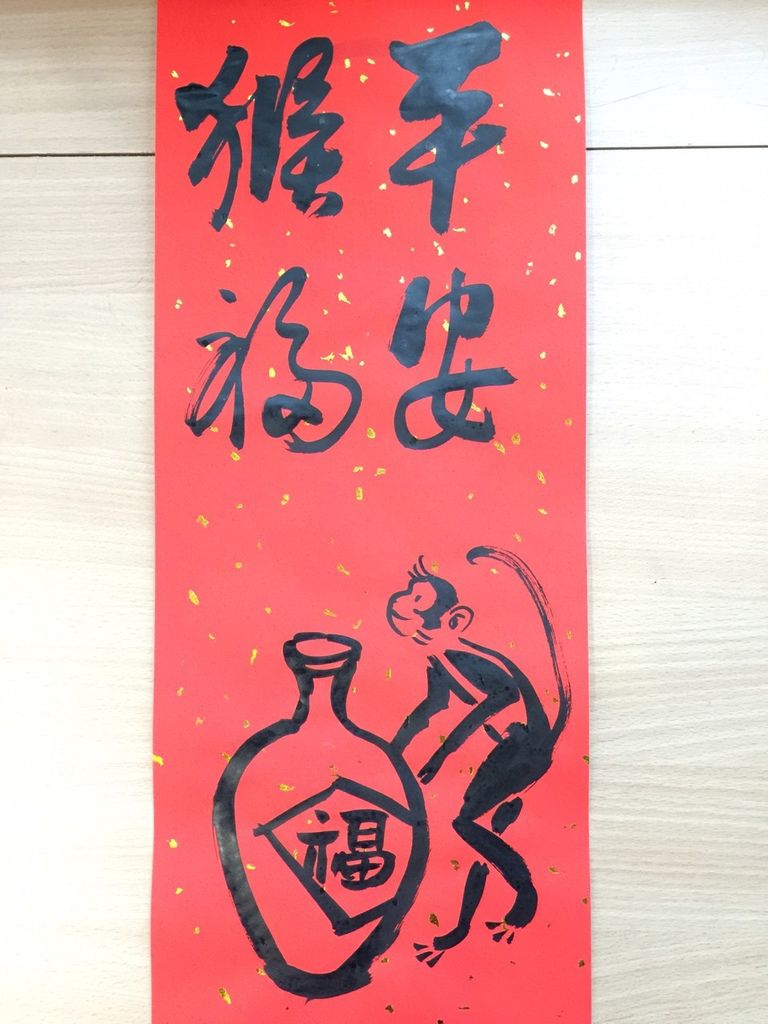 平安
猴福
福